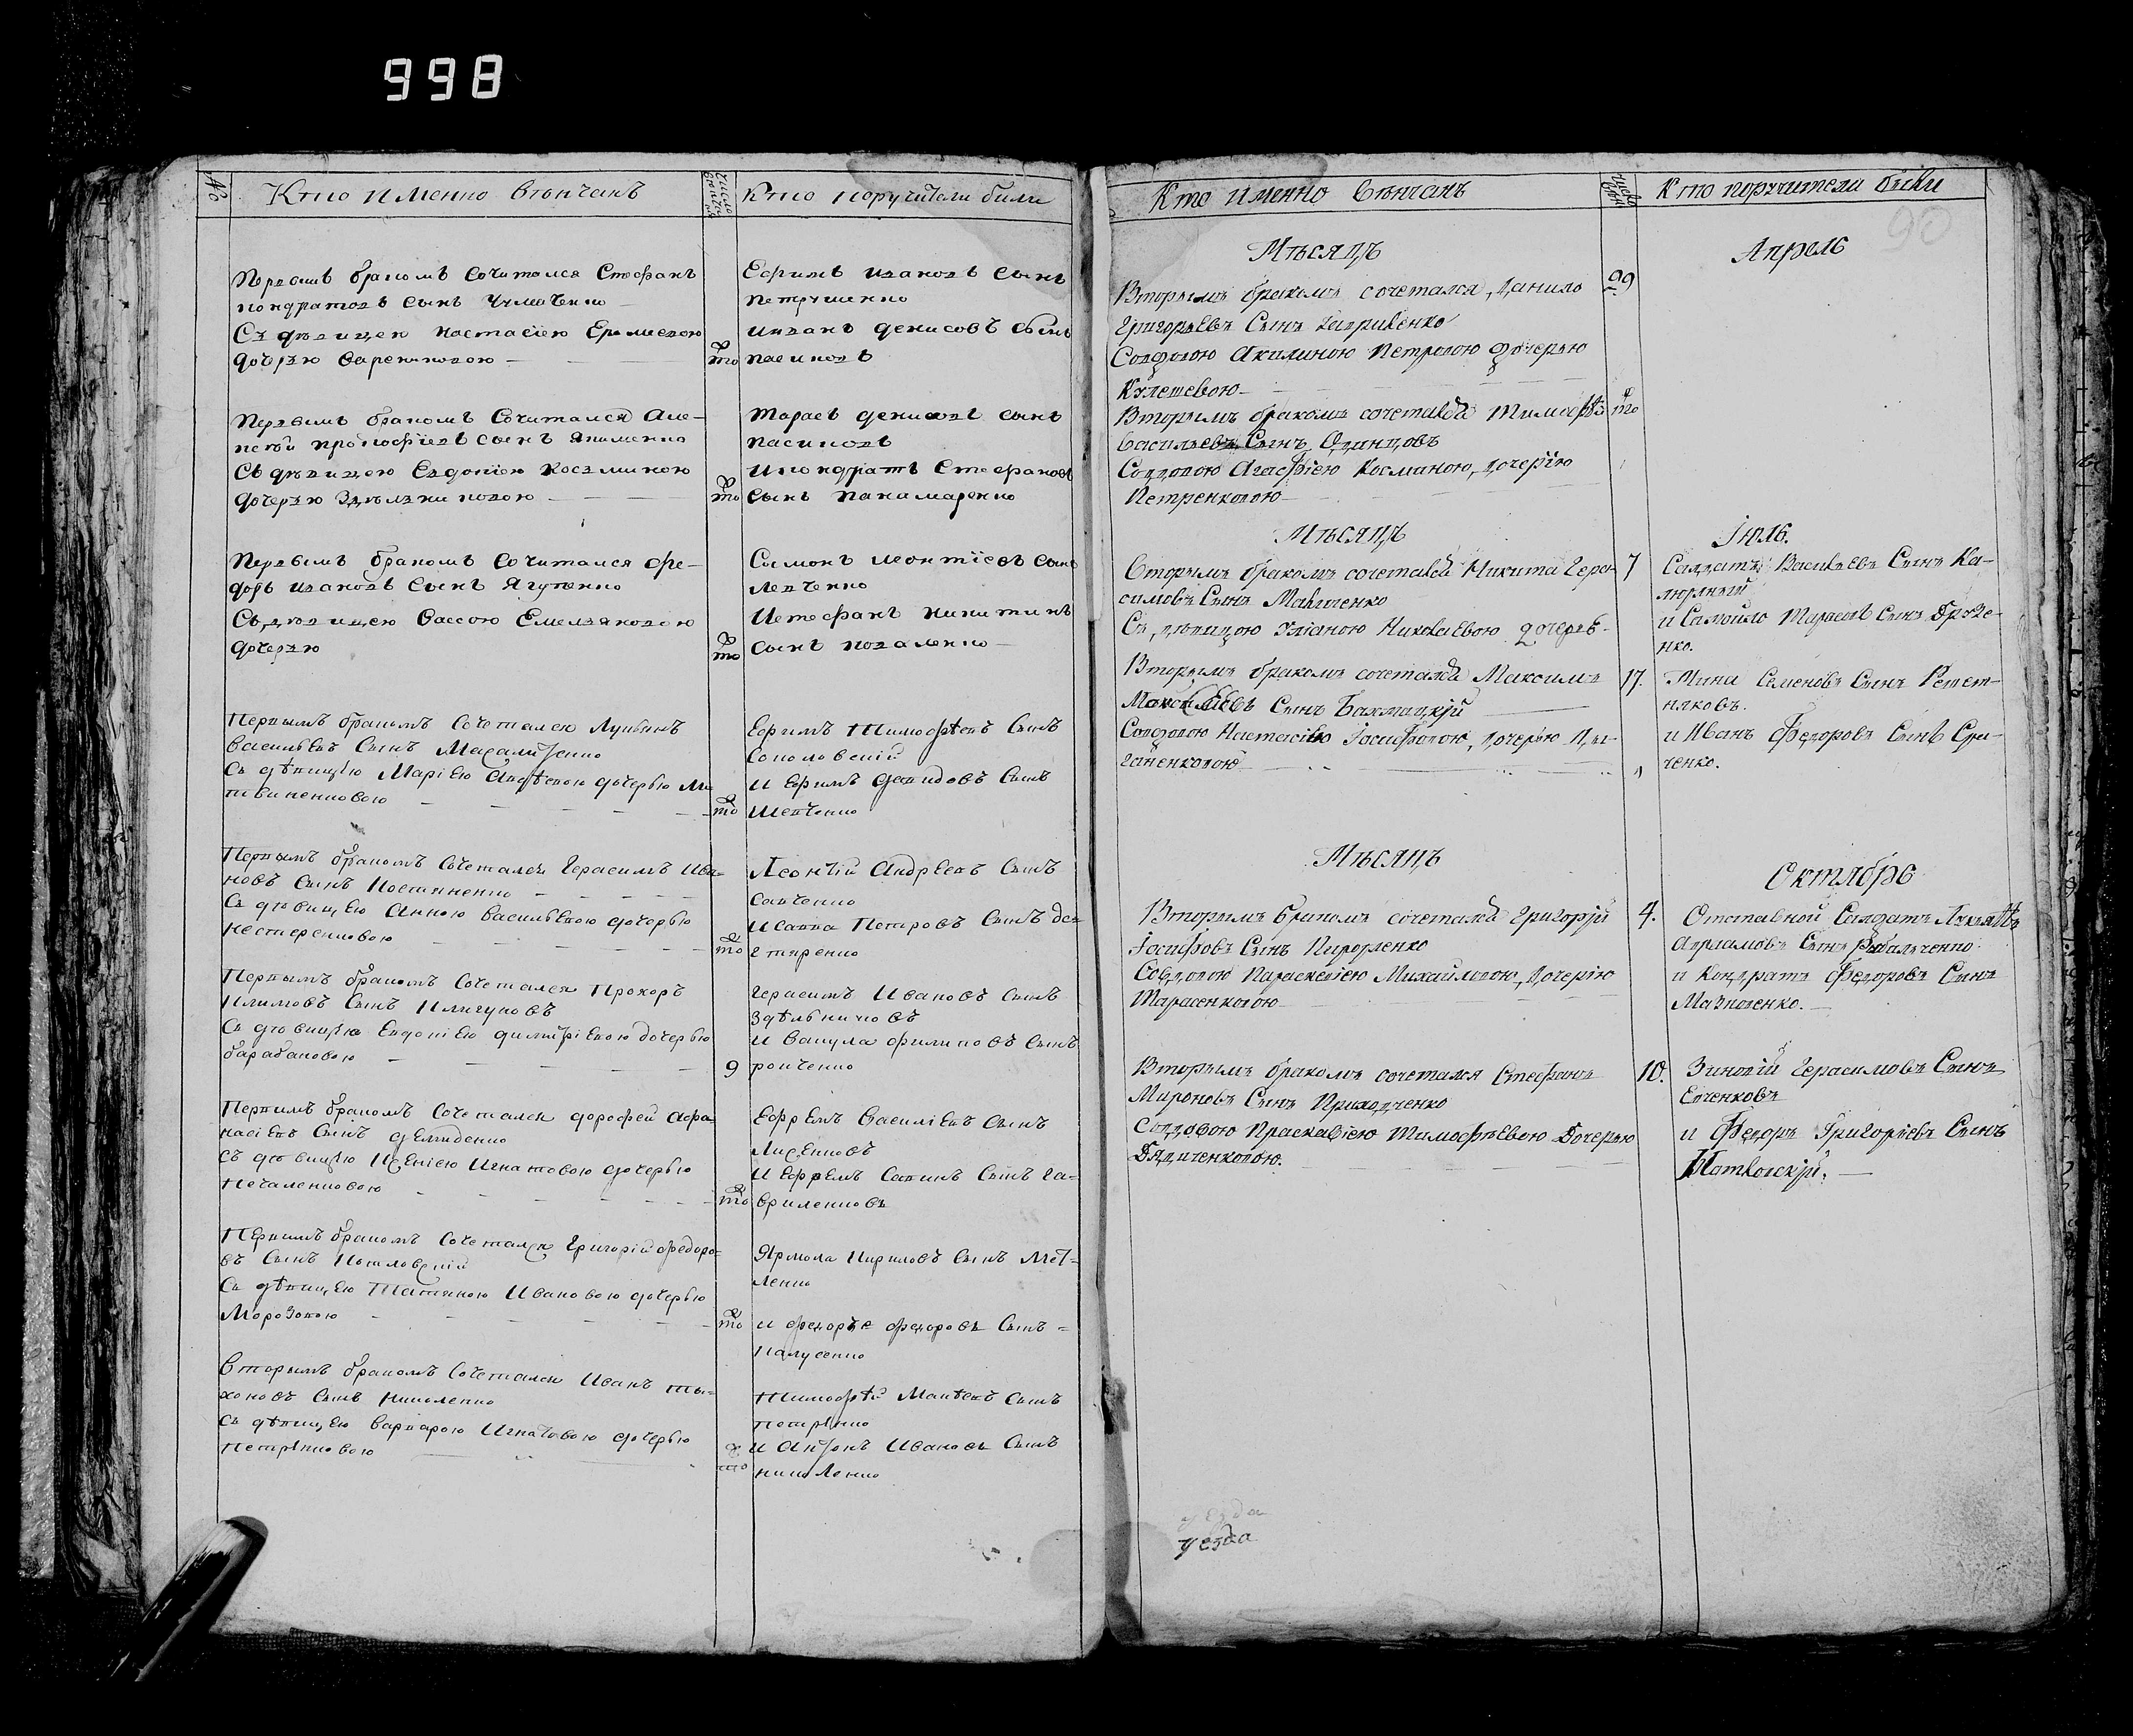 998
№ Кто именно вѣнчанъ Число Кто поручители были
Первимъ бракомъ Сочитался Стефанъ
кондратовъ сынъ Чумаченко
Съ дѣвицею настасіею Ермиевою
дочерью
Ефимъ ивановъ сынъ
петрушенко
иванъ денисовъ сынъ
то пасиковъ
Первимъ бракомъ Сочитался Але-
ксѣй прокофіевъ сынъ якименко
Съ дѣвицею Евдокіею Козминою
дочерью
Тарасъ денисовъ сынъ
пасиковъ
и кондратъ Стефановъ
то сынъ панамаренко
Первимъ бракомъ Сочитался фе-
доръ ивановъ сынъ Ягупенко
Съ дѣвицею Вассою Емельяновою
дочерью
Самонъ леонтіевъ сынъ
левченко
и стефанъ никитинъ
то сынъ коваленко
Первымъ бракомъ Сочетался Лукьянъ
васильевъ Сынъ
Съ дѣвицею Маріею дочерью Ли-
твиненковою
Ефимъ Тимофѣевъ Сынъ
Соколовскій
и Ефимъ Демидовъ Сынъ
то Шевченко
Первымъ бракомъ Сочетался Герасимъ Ива-
новъ Сынъ Костиненко
Съ дѣвицею Анною васильевою дочерью
нестеренковою
Леонтій Андреевъ Сынъ
Савченко
и Савва Петровъ Сынъ де-
то гтяренко
Первымъ бракомъ Сочетался Прохоръ
Климовъ Сынъ Кличуновъ
Съ дѣвицею Евдокіею димитріевою дочерью
барабановою
Герасимъ Ивановъ Сынъ
Здѣльниковъ
и вакула филиповъ Сынъ
9 ройченко
Первимъ бракомъ Сочетался дорофей Афа-
насіевъ Сынъ демиденко
Съ дѣвицею Ксеніею Игнатовою дочерью
почаленковою
Ефремъ Василіевъ Сынъ
Лисенковъ
и Ефремъ Савинъ Сынъ га-
то вриленковъ
Первимъ бракомъ Сочетался Григорій федоро-
въ Сынъ
Съ дѣвицею Татяною Ивановою дочерью
Морозовою
Ярмола Кириловъ Сынъ
то и федоръ федоровъ Сынъ
Галусенко
Вторымъ бракомъ Сочетался Иванъ ти-
хоновъ Сынъ николенко
Съ дѣвицею варварою Игнатовою дочерью
петренковою
Тимофѣй Матвѣевъ Сынъ
петренко
и Антонъ Ивановъ Сынъ
то николенко
Кто именно вѣнчанъ Число Кто поручители были
90
Мѣсяцъ Апрель
Вторымъ бракомъ сочетался Данило 29
Григорьевъ Сынъ Гавриленко
Совдовою Акилиною Петровою дочерью
Кулешевою
Вторымъ бракомъ сочетался Тимофѣй то
Васильевъ Сынъ Одинцовъ
Совдовою Агафіею Косминою дочерію
Петренковою
Мѣсяцъ Іюль.
Вторымъ бракомъ сочетался Никита Гера- 7
симовъ Сынъ
Съ дѣвицою Уліаною Николаевою дочерью
Солдатъ Васильевъ Сынъ Ка-
люжный
и Самойло Тарасовъ Сынъ
нко.
Вторымъ бракомъ сочетался Максимъ 17.
Сынъ Бахмацкій
Совдовою Настасіею Іосифовою дочерію Цы-
ганенковою
Мина Семеновъ Сынъ Решет-
няковъ.
и Иванъ Федоровъ Сынъ
ченко.
Мѣсяцъ Октябрь
Вторымъ бракомъ сочетался Григорій 4.
Іосифовъ Сынъ
Совдовою Параскевіею Михайловою дочерію
Тарасенковою
Отставной Солдатъ
Авраамовъ Сынъ Рыбальченко
и Кондратъ Федоровъ Сынъ
Вторымъ бракомъ сочетался Стефанъ 10.
Мироновъ Сынъ Приходченко
Совдовою Праскавіею Тимофѣевою Дочерью
Дядиченковою.
Зиновій Герасимовъ Сынъ
Евченковъ
и Федоръ Григоріевъ Сынъ
уезда
уезда